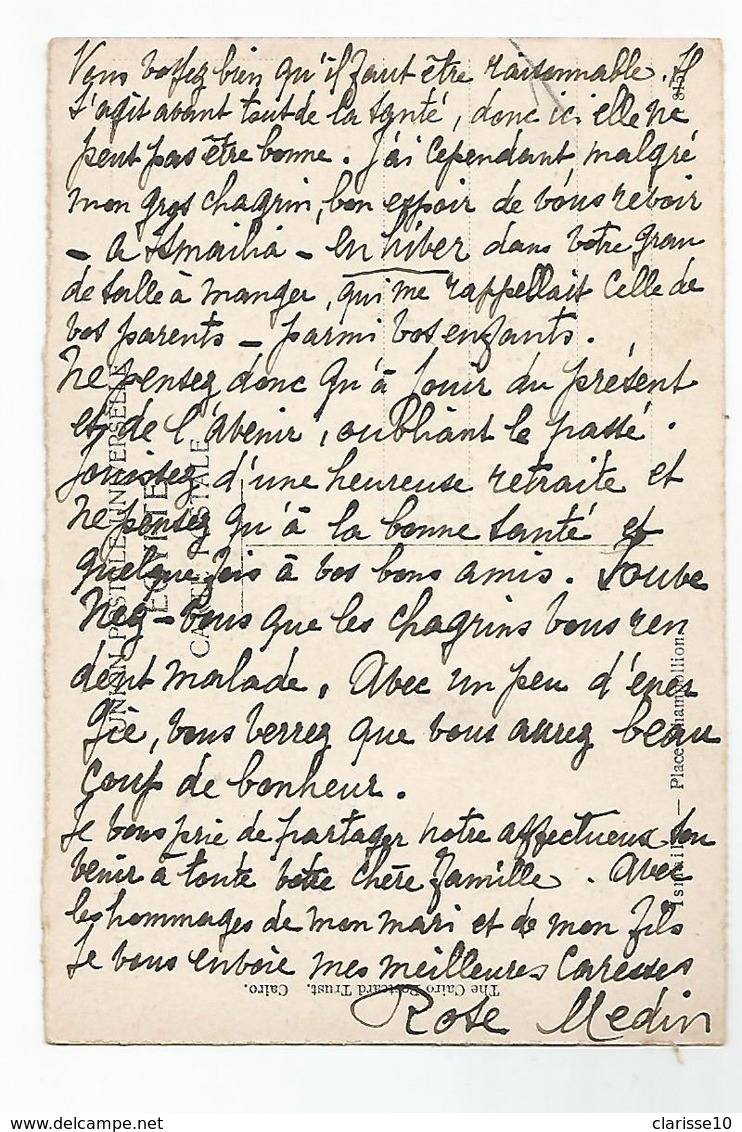 Vous voyez bien qu'il faut être raisonnable. Il
s'agit avant tout de la santé, donc ici elle ne
peut pas être bonne. J'ai cependant, malgré
mon gros chagrin, bon espoir de vous revoir
- a Ismailia - en hiver dans votre gran
de salle à manger, qui me rappellait celle de
vos parents - parmi vos enfants.
Ne pensez donc qu'à jouir du présent
et de l'avenir, oubliant le passé.
Jouissez d'une heureuse retraite et
ne pensez qu'à la bonne santé et
quelque fois à vos bons amis. Souve
nez-vous que les chagrins vous ren
dent malade. Avec un peu d'éner
gie, vous verrez que vous aurez beau
coup de bonheur.
Je vous prie de partager notre affectueux sou
venir à toute votre chère famille. Avec
les hommages de mon mari et de mon fils
je vous envoie mes meilleures caresses
Rose Medin
UNION POSTALE UNIVERSELLE
EGYPTE
CARTE POSTALE
Ismailia — Place Champollion
The Cairo Postcard Trust, Cairo.
clarisse10